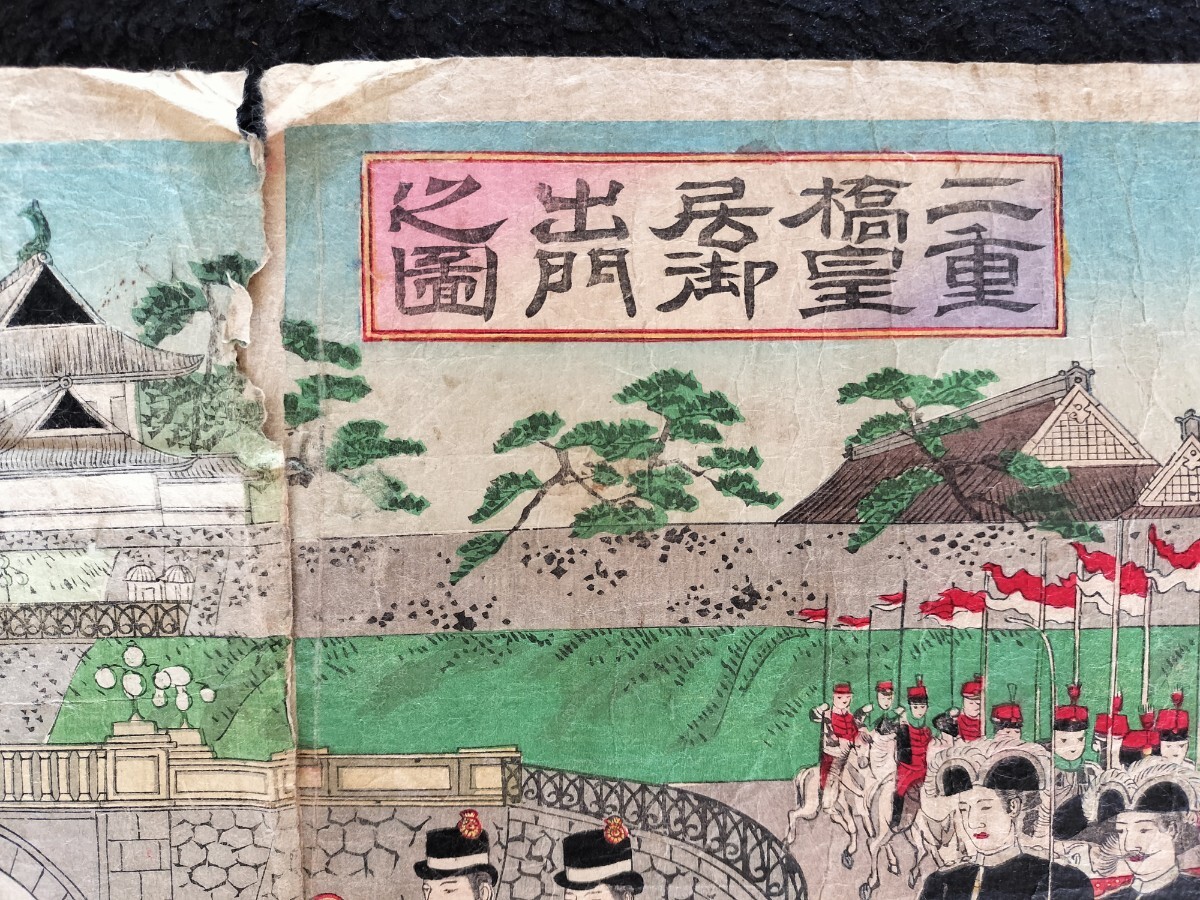 二重橋皇居御出門之圖